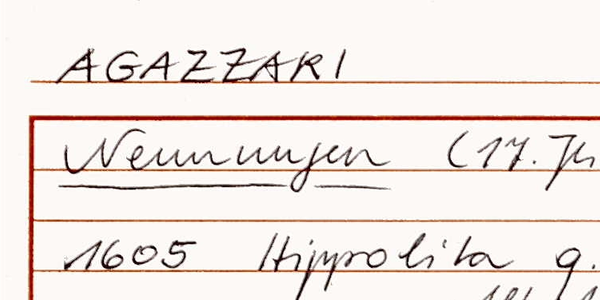 AGAZZARI
Nennungen (17. Jh
1605 Hippolita q.